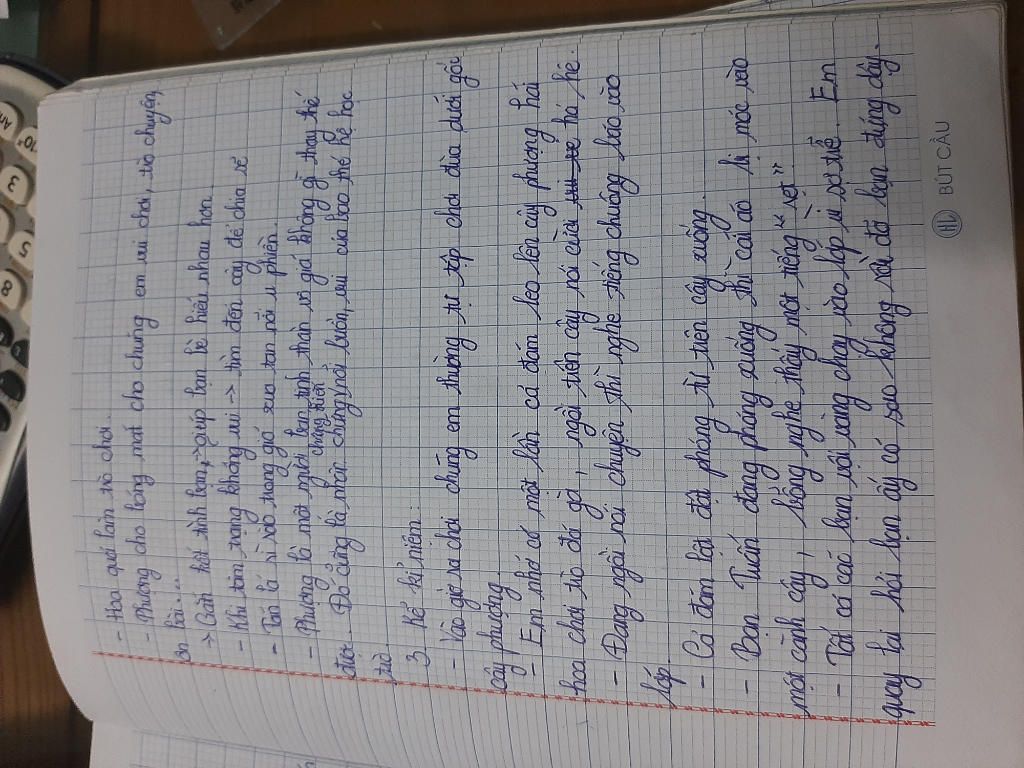 - Hoa quả làm trò chơi.
- Phượng cho bóng mát cho chúng em vui chơi, trò chuyện,
ôn bài....
-> Gắn kết tình bạn, -> giúp bạn bè hiểu nhau hơn.
- Khi tâm trạng không vui -> tìm đến cây để chia sẻ
- Tán lá rì rào trong gió xua tan nỗi u phiền.
- Phượng là một người bạn tinh thần vô giá không gì thay thế
được. Đó cũng là nhân chứng nỗi buồn, vui của bao thế hệ học
chứng kiến
trò
3. Kể kỉ niệm:
- Vào giờ ra chơi chúng em thường tụ tập chơi đùa dưới gốc
cây phượng.
- Em nhớ có một lần cả đám leo lên cây phượng hái
hoa chơi trò đá gà, ngồi trên cây nói cười hả hê.
- Đang ngồi nói chuyện thì nghe tiếng chuông báo vào
lớp.
- Cả đám lật đật phóng từ trên cây xuống.
- Bạn Tuấn đang phóng xuống thì cái áo bị móc vào
một cành cây, bỗng nghe thấy một tiếng "xẹt"
- Tất cả các bạn vội vàng chạy vào lớp vì sợ trễ. Em
quay lại hỏi bạn ấy có sao không rồi đỡ bạn đứng dậy.
BÚT CÂU
8
5
3